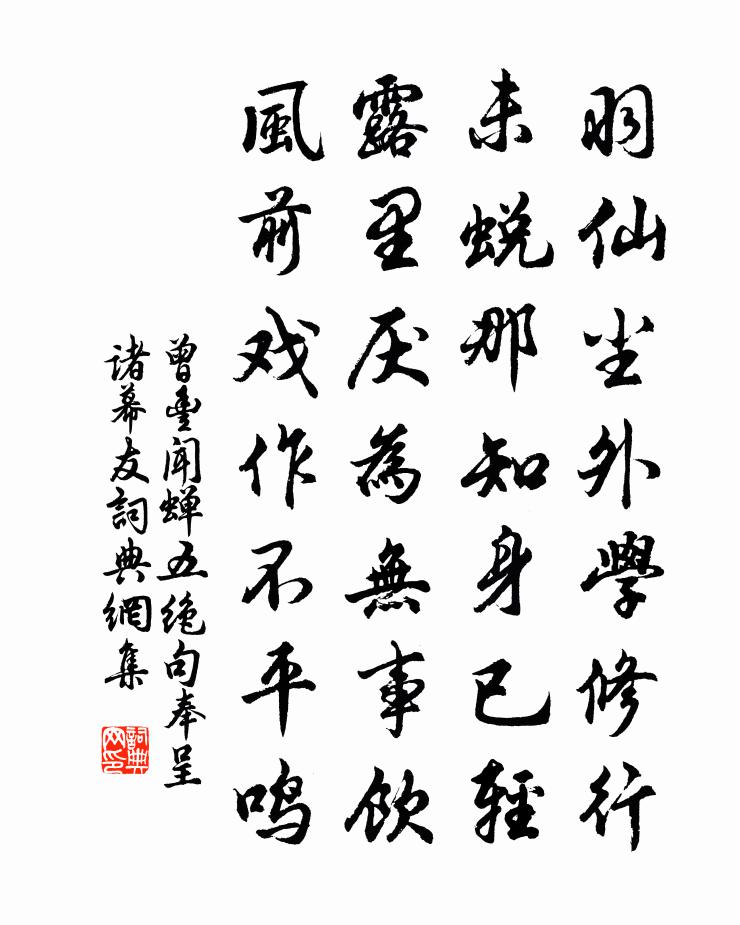 羽仙尘外學修行
未蜕那知身已輕
露里厌為無事飲
風前戏作不平鸣
曾豊闻蝉五绝句奉呈
诸幕友詞典網集
詞典网印